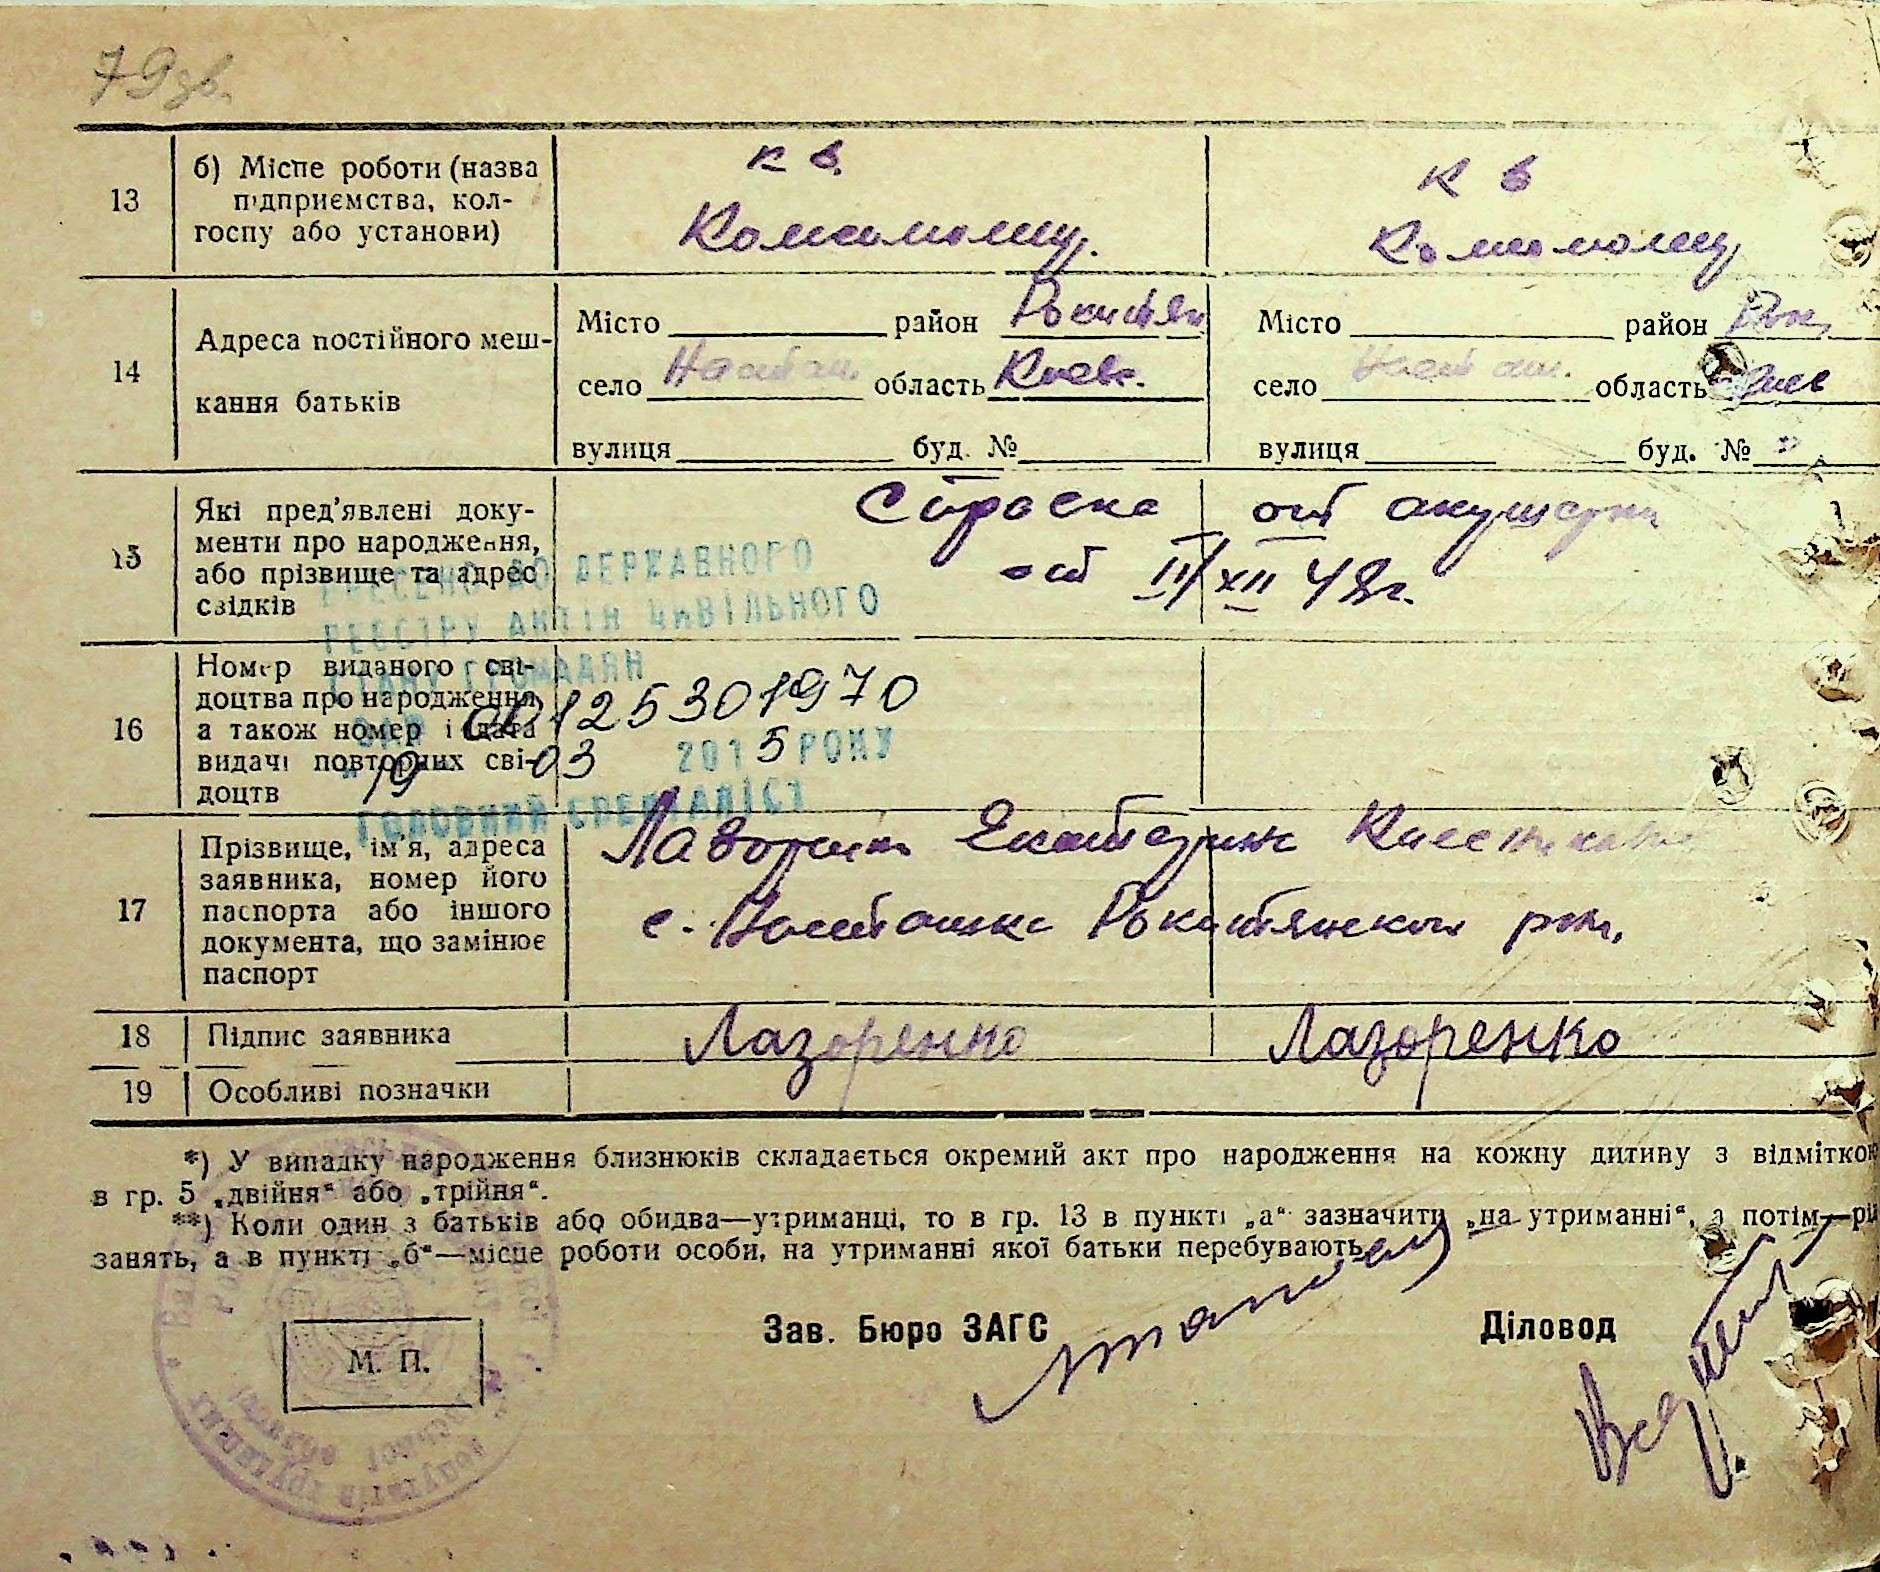 79 зв.
13
б) Місце роботи (назва
підприємства, кол-
госпу або установи)
к в
к в
14
Адреса постійного меш-
кання батьків
Місто район Рокитян
село Насташ. область Киев.
вулиця буд. №
Місто район Рок.
село Насташ. область Киев
вулиця буд. №
15
Які пред'явлені доку-
менти про народження,
або прізвище та адрес
свідків
Справка от акушерки
от II/XII 48г.
ВНЕСЕНО ДО ДЕРЖАВНОГО
РЕЄСТРУ АКТІВ ЦИВІЛЬНОГО
СТАНУ ГРОМАДЯН
16
Номер виданого сві-
доцтва про народження,
а також номер і дата
видачі повторних сві-
доцтв
125301970
19 03 2015 РОКУ
ГОЛОВНИЙ СПЕЦІАЛІСТ
17
Прізвище, ім'я, адреса
заявника, номер його
паспорта або іншого
документа, що замінює
паспорт
Екатерина
с. Насташка Рокитянского рон,
18
Підпис заявника
Лазоренко
Лазоренко
19
Особливі позначки
*) У випадку народження близнюків складається окремий акт про народження на кожну дитину з відміткою
в гр. 5 „двійня“ або „трійня“.
**) Коли один з батьків або обидва—утриманці, то в гр. 13 в пункті „а“ зазначити „на утриманні“, а потім—рід
занять, а в пункті „б“—місце роботи особи, на утриманні якої батьки перебувають.
Зав. Бюро ЗАГС
Діловод
М. П.